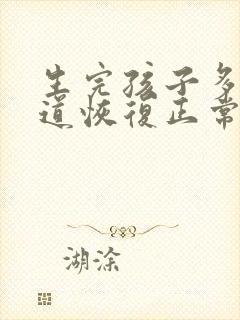 生完孩子多
道恢復正常
湖涂